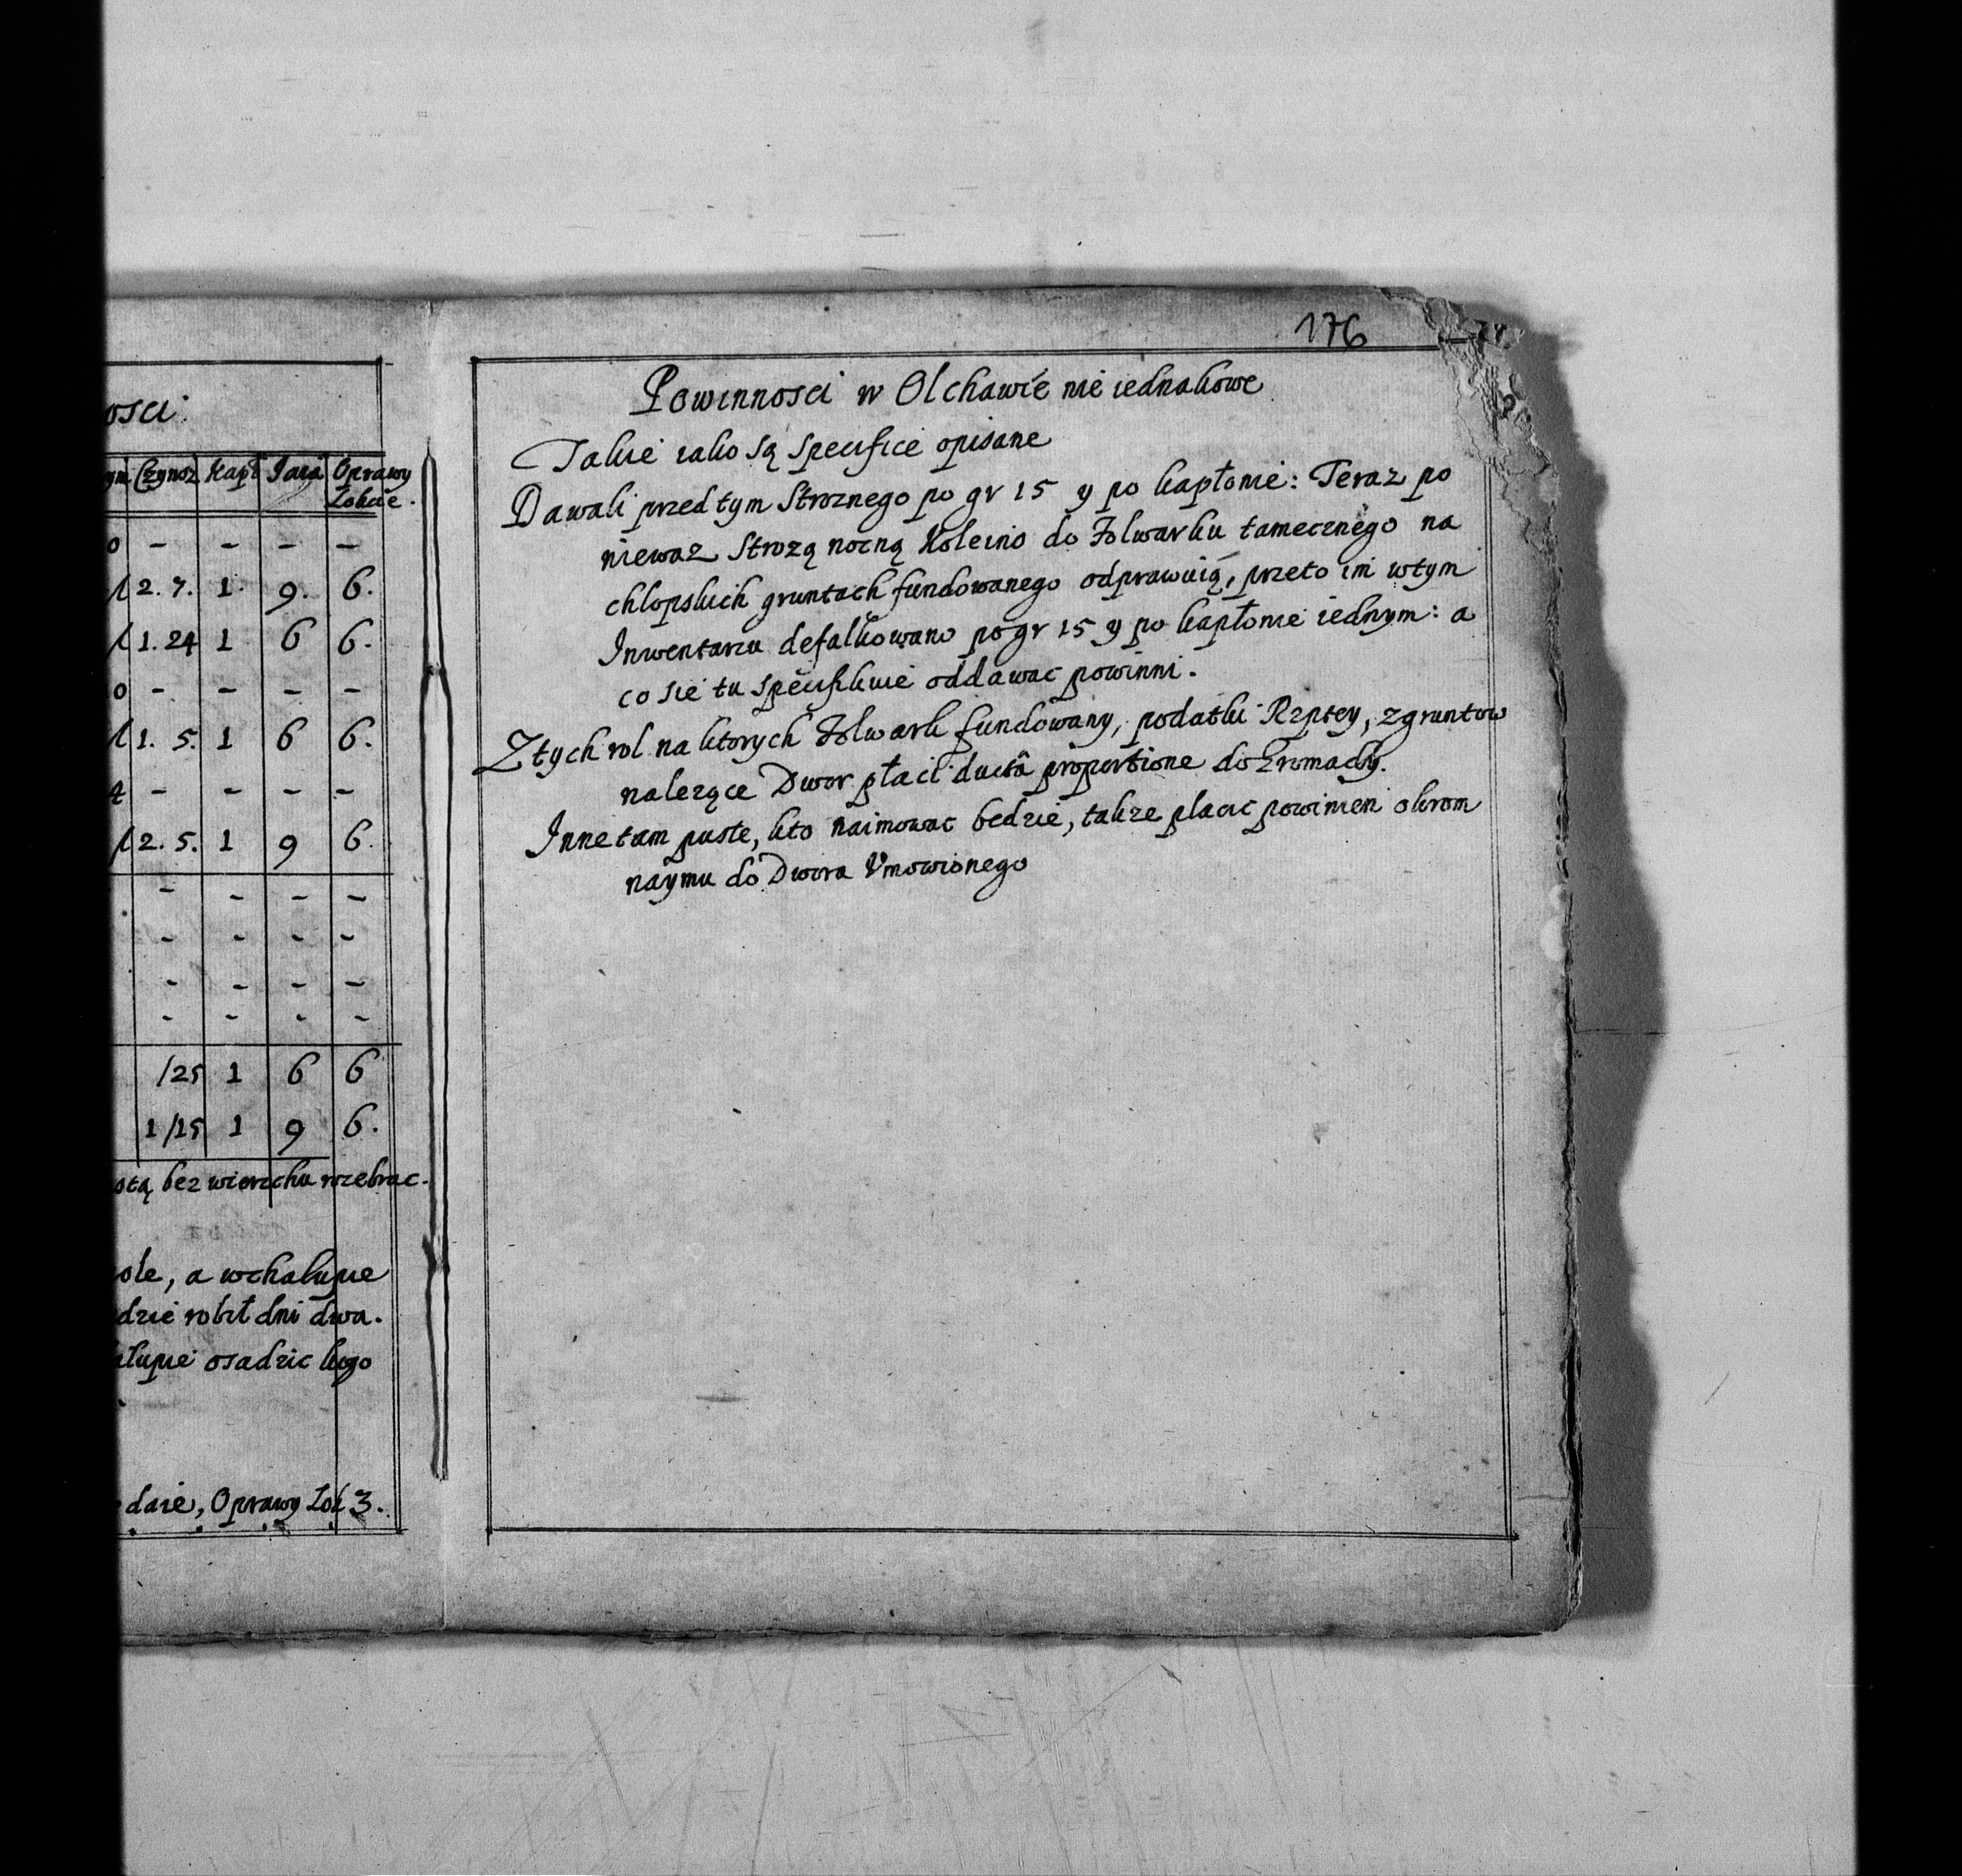 osci
Czynsz Kapł Jaia Oprawy
Łokcie.
0 - - - -
2. 7. 1. 9. 6.
1. 24 1 6 6.
0 - - - -
1. 5. 1 6 6.
- - - -
2. 5. 1 9 6.
- - - -
- - - -
- - - -
- - - -
/25 1 6 6
1/15 1 9 6.
bez wierzchu wzebrac.
ole, a wchałupie
dzie robił dni dwa.
łupie osadzic kogo
daie, Oprawy Łok 3.
176
Powinnosci w Olchawie nie iednakowe
Takie iako są specifice opisane
Dawali przed tym Stroznego po gr 15 y po kapłonie: Teraz po
niewaz Strozą nocną Koleino do Folwarku tamecznego na
chlopskich gruntach fundowanego odprawuią, przeto im wtym
Inwentarzu defalkowano po gr 15 y po kapłonie iednym: a
co sie tu specifikuie oddawac powinni.
Z tych rol na ktorych Folwark fundowany, podatki Rzptey, z gruntow
nalezące Dwor płacił ductâ proportione do Gromady.
Inne tam puste, kto naimowac bedzie, takze placic powinien okrom
naymu do Dwora Vmowionego